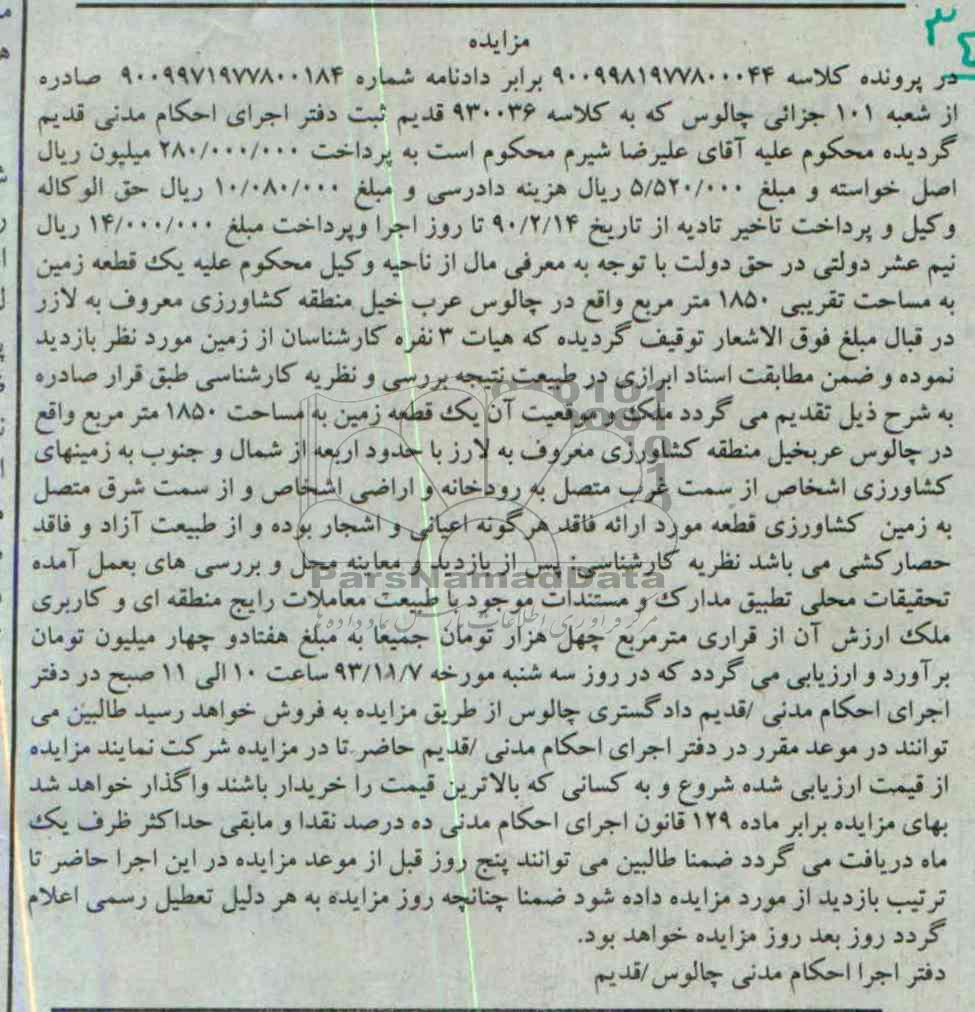 ۳۴
مزایده
در پرونده کلاسه ۹۰۰۹۹۸۱۹۷۷۸۰۰۰۴۴ برابر دادنامه شماره ۹۰۰۹۹۷۱۹۷۷۸۰۰۱۸۴ صادره
از شعبه ۱۰۱ جزائی چالوس که به کلاسه ۹۳۰۰۳۶ قدیم ثبت دفتر اجرای احکام مدنی قدیم
گردیده محکوم علیه آقای علیرضا شیرم محکوم است به پرداخت ۲۸۰/۰۰۰/۰۰۰ میلیون ریال
اصل خواسته و مبلغ ۵/۵۲۰/۰۰۰ ریال هزینه دادرسی و مبلغ ۱۰/۰۸۰/۰۰۰ ریال حق الوکاله
وکیل و پرداخت تاخیر تادیه از تاریخ ۹۰/۲/۱۴ تا روز اجرا وپرداخت مبلغ ۱۴/۰۰۰/۰۰۰ ریال
نیم عشر دولتی در حق دولت با توجه به معرفی مال از ناحیه وکیل محکوم علیه یک قطعه زمین
به مساحت تقریبی ۱۸۵۰ متر مربع واقع در چالوس عرب خیل منطقه کشاورزی معروف به لازر
در قبال مبلغ فوق الاشعار توقیف گردیده که هیات ۳ نفره کارشناسان از زمین مورد نظر بازدید
نموده و ضمن مطابقت اسناد ابرازی در طبیعت نتیجه بررسی و نظریه کارشناسی طبق قرار صادره
به شرح ذیل تقدیم می گردد ملک و موقعیت آن یک قطعه زمین به مساحت ۱۸۵۰ متر مربع واقع
در چالوس عربخیل منطقه کشاورزی معروف به لارز با حدود اربعه از شمال و جنوب به زمینهای
کشاورزی اشخاص از سمت غرب متصل به رودخانه و اراضی اشخاص و از سمت شرق متصل
به زمین کشاورزی قطعه مورد ارائه فاقد هرگونه اعیانی و اشجار بوده و از طبیعت آزاد و فاقد
حصارکشی می باشد نظریه کارشناسی: پس از بازدید و معاینه محل و بررسی های بعمل آمده
ParsNamadData
تحقیقات محلی تطبیق مدارک و مستندات موجود با طبیعت معاملات رایج منطقه ای و کاربری
ملک ارزش آن از قراری مترمربع چهل هزار تومان جمیعا به مبلغ هفتادو چهار میلیون تومان
برآورد و ارزیابی می گردد که در روز سه شنبه مورخه ۹۳/۱۱/۷ ساعت ۱۰ الی ۱۱ صبح در دفتر
اجرای احکام مدنی /قدیم دادگستری چالوس از طریق مزایده به فروش خواهد رسید طالبین می
توانند در موعد مقرر در دفتر اجرای احکام مدنی /قدیم حاضر تا در مزایده شرکت نمایند مزایده
از قیمت ارزیابی شده شروع و به کسانی که بالاترین قیمت را خریدار باشند واگذار خواهد شد
بهای مزایده برابر ماده ۱۲۹ قانون اجرای احکام مدنی ده درصد نقدا و مابقی حداکثر ظرف یک
ماه دریافت می گردد ضمنا طالبین می توانند پنج روز قبل از موعد مزایده در این اجرا حاضر تا
ترتیب بازدید از مورد مزایده داده شود ضمنا چنانچه روز مزایده به هر دلیل تعطیل رسمی اعلام
گردد روز بعد روز مزایده خواهد بود.
دفتر اجرا احکام مدنی چالوس /قدیم